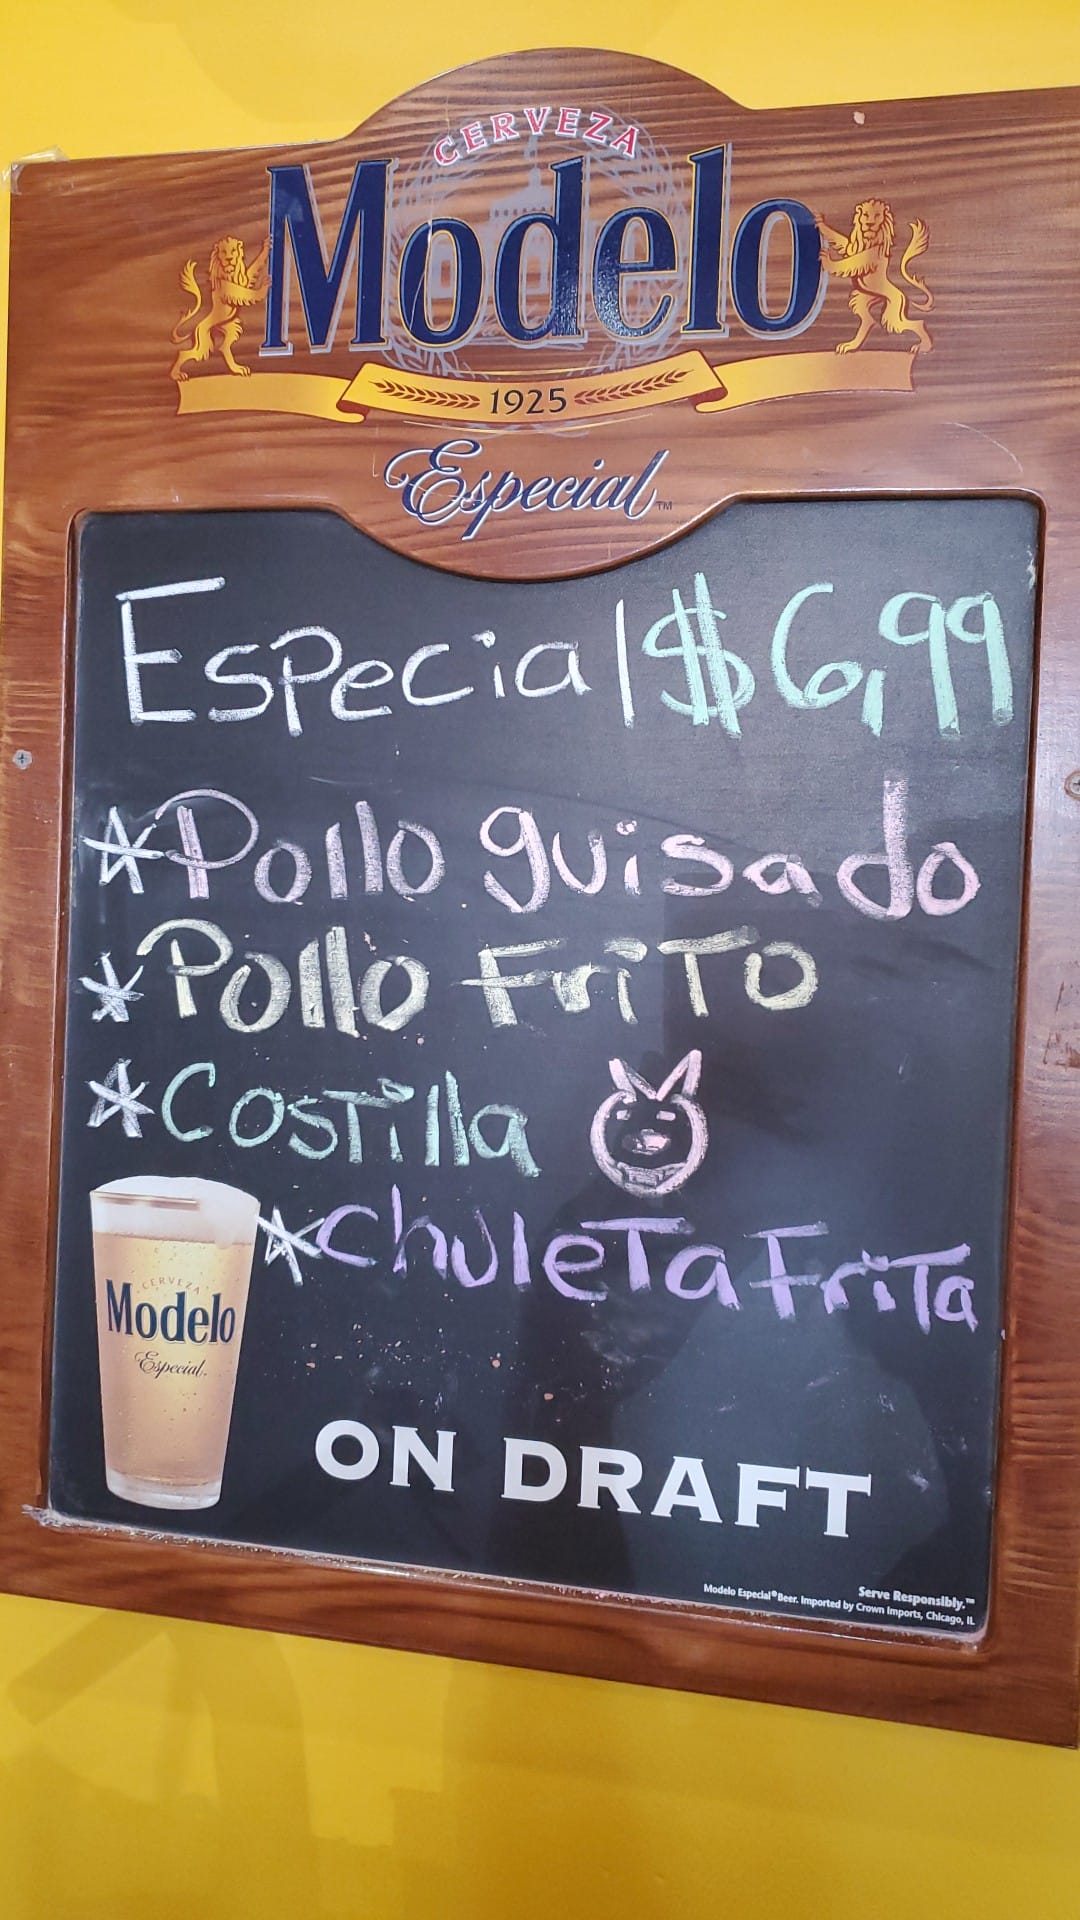 CERVEZA
Modelo
1925
Especial™
Especial $6,99
*Pollo guisado
*Pollo FriTo
*CosTilla
*ChuleTa FriTa
CERVEZA
Modelo
Especial.
ON DRAFT
Serve Responsibly.™
Modelo Especial® Beer. Imported by Crown Imports, Chicago, IL